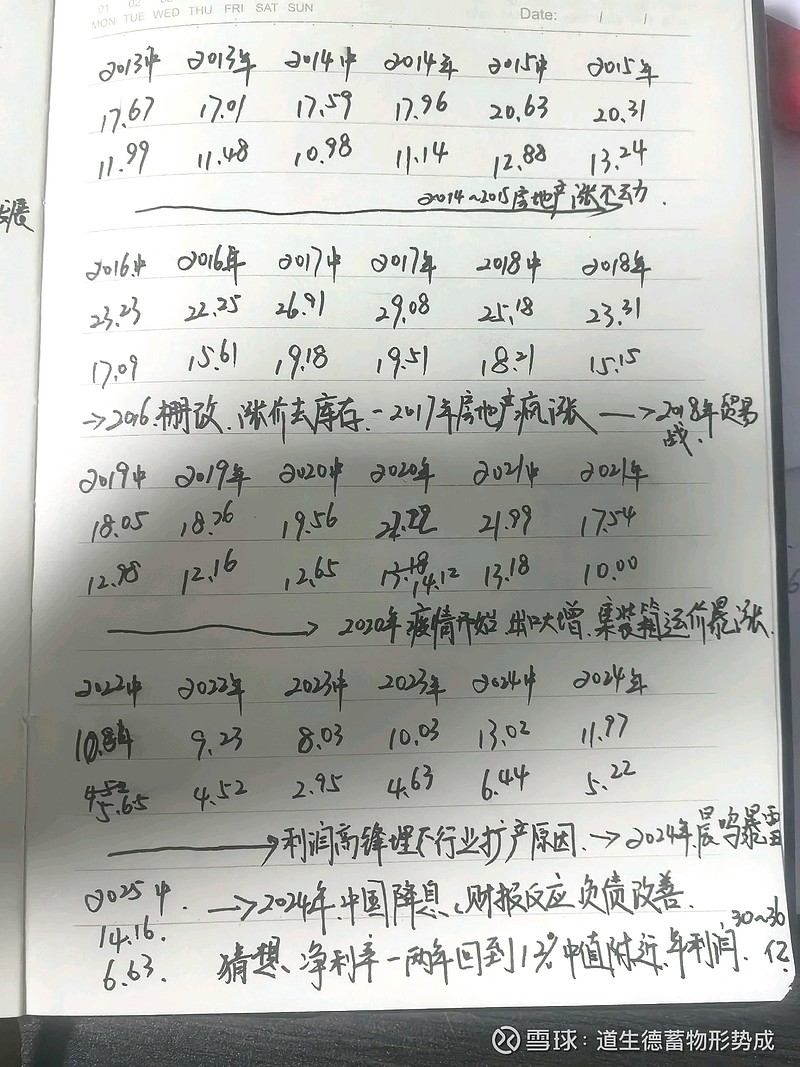 01 02
MON TUE WED THU FRI SAT SUN
Date: / /
2013中 2013年 2014中 2014年 2015中 2015年
17.67 17.01 17.59 17.96 20.63 20.31
11.99 11.48 10.98 11.14 12.88 13.24
2014~2015房地产涨不动力.
发展
2016中 2016年 2017中 2017年 2018中 2018年
23.23 22.25 26.91 29.08 25.18 23.31
17.09 15.61 19.18 19.51 18.21 15.15
→2016.棚改.涨价去库存.-2017年房地产疯涨 →2018年贸易
战.
2019中 2019年 2020中 2020年 2021中 2021年
18.05 18.26 19.56 21.99 17.54
12.98 12.16 12.65 14.12 13.18 10.00
→ 2020年疫情开始 出口大增.集装箱运价暴涨.
2022中 2022年 2023中 2023年 2024中 2024年
10.84 9.23 8.03 10.03 13.02 11.97
4.52
5.65 4.52 2.95 4.63 6.44 5.22
→利润高锋埋下行业扩产原因.→2024年.晨鸣暴雷
2025中. →2024年.中国降息、财报反应负债改善.
14.16.
6.63. 猜想、净利率一两年回到12%中值附近.年利润.30~36
亿.
雪球:道生德蓄物形势成